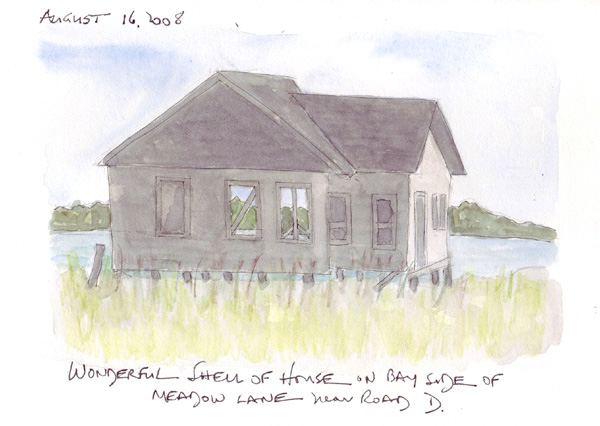 AUGUST 16, 2008
WONDERFUL SHELL OF HOUSE ON BAY SIDE OF
MEADOW LANE near ROAD D.